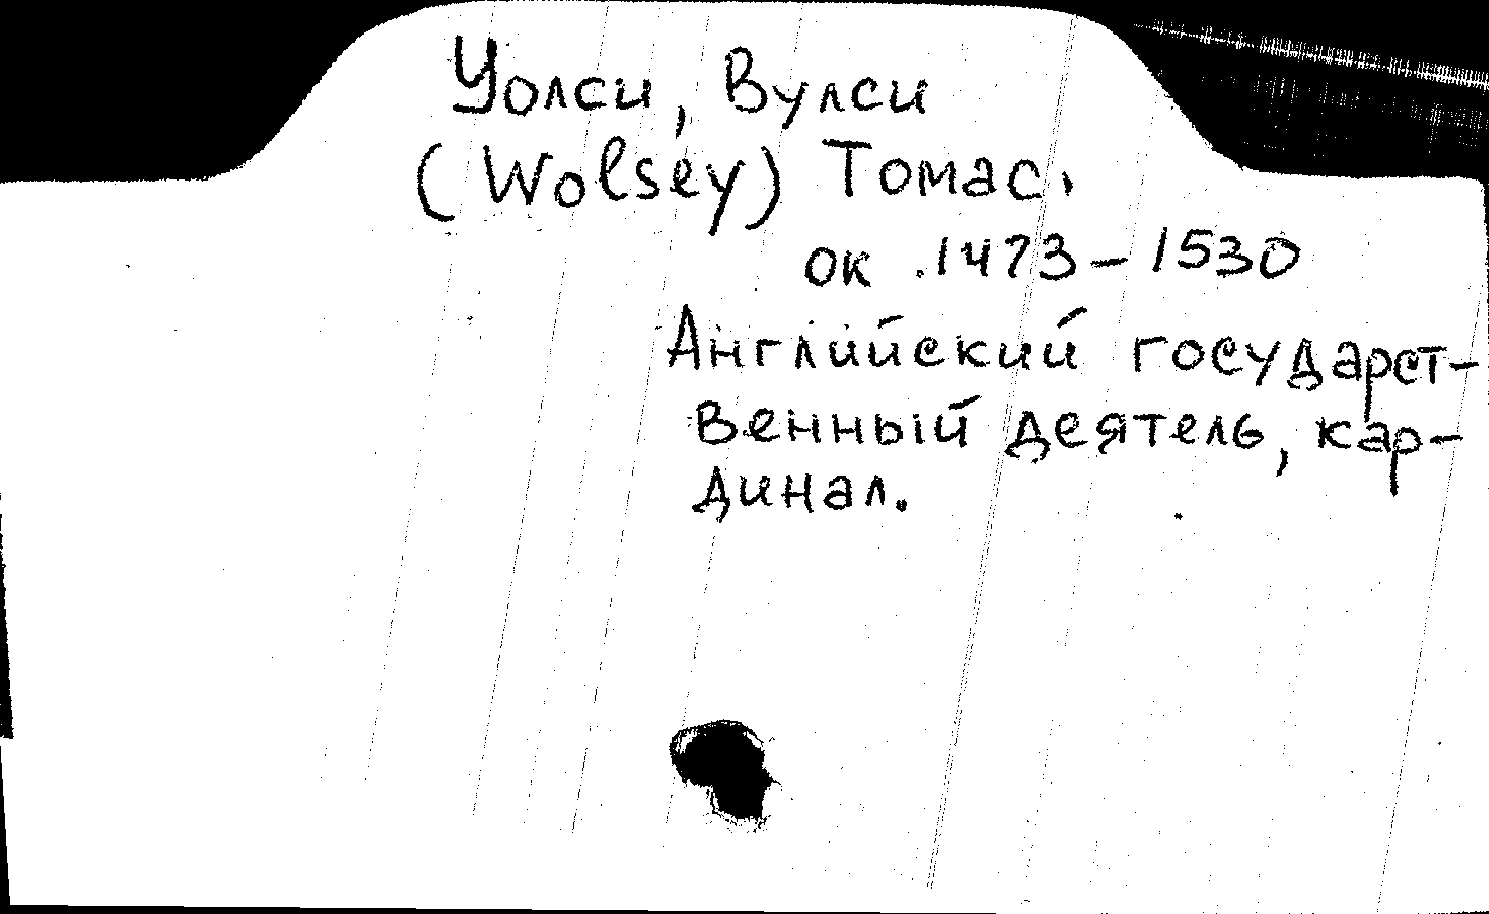 Уолси, Вулси
(Wolsey) Томас.
ок. 1473-1530
Английский государст-
венный деятель, кар-
динал.